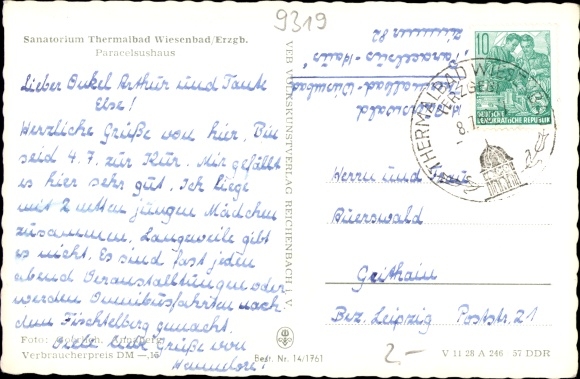 9319
Sanatorium Thermalbad Wiesenbad/Erzgb.
Paracelsushaus
Lieber Onkel Arthur und Tante
Else!
Herzliche Grüße von hier. Bin
seid 4.7. zur Kur. Mir gefällt
es hier sehr gut. Ich liege
mit 2 netten jungen Mädchen
zusammen, Langeweile gibt
es nicht. Es sind fast jeden
abend Veranstaltungen oder
werden Omnibusfahrten nach
dem Fichtelberg gemacht.
Viele liebe Grüße von
Hannelore!
Foto:
Verbraucherpreis DM —,15
VEB VOLKSKUNSTVERLAG REICHENBACH I. V.
Best. Nr. 14/1761
H. Buerswald
Thermalbad-Wiesenbad
Paracelsius-Haus
Zimmer 82
10
DEUTSCHE
DEMOKRATISCHE REPUBLIK
THERMALBAD WIESENBAD
(ERZGEB)
-8.7.
Herrn und Frau
Buerswald
Geithain
Bez. Leipzig Poststr. 21
2,-
V 11 28 A 246 57 DDR